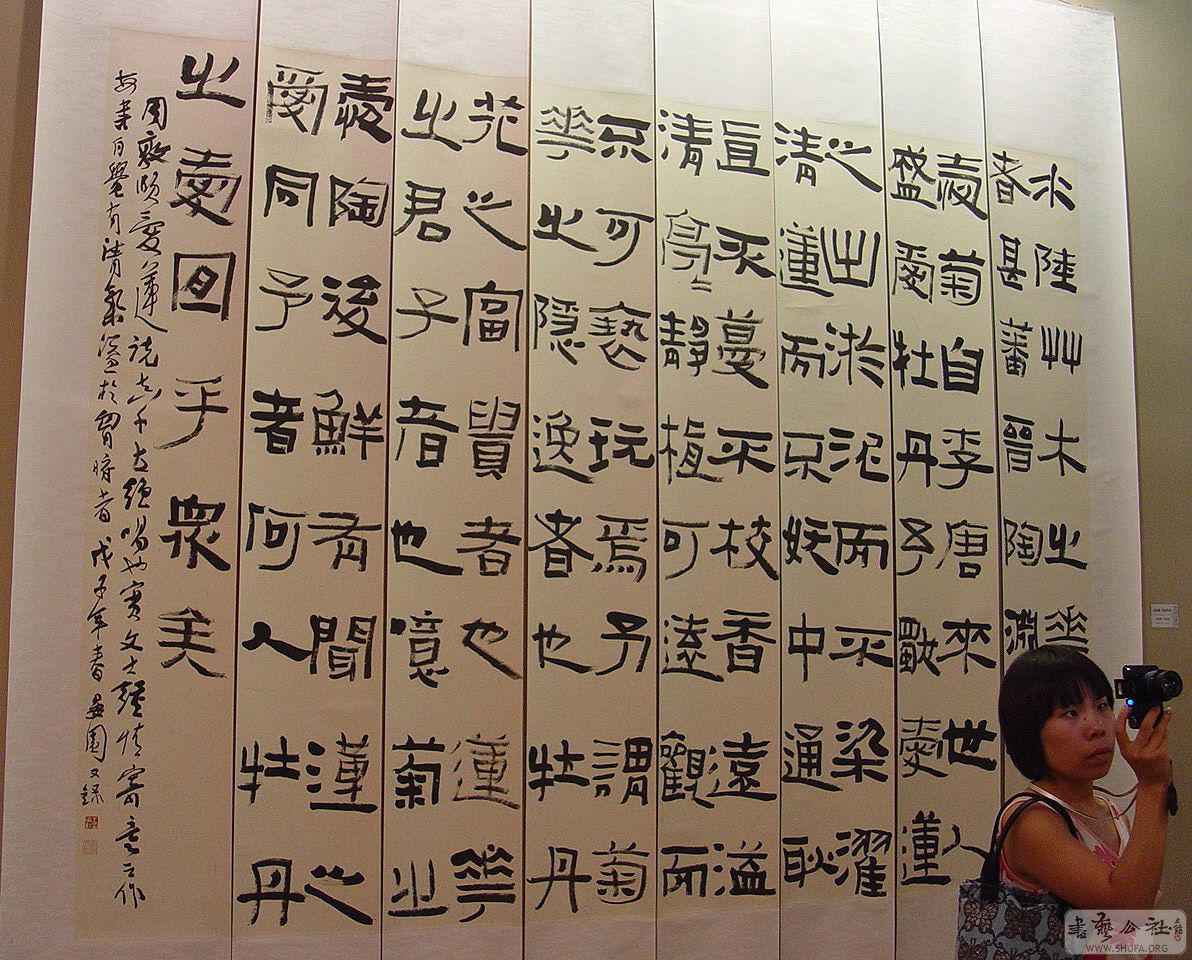 水陸艸木之華
者甚蕃晉陶淵
愛菊自李唐來世人
盛愛牡丹予獨愛蓮
之出淤泥而不染濯
清蓮而不妖中通外
直不蔓不枝香遠溢
清亭亭靜植可遠觀而
不可褻玩焉予謂菊
華之隱逸者也牡丹
花之富貴者也蓮華
之君子者也噫菊之
愛陶後鮮有聞蓮之
愛同予者何人牡丹
之愛宜乎眾美
周敦頤愛蓮說為千古絕唱也實文士情寄意之作
每書自覺有清氣溢於胷腑者戊子年春園又錄
書藝公社
WWW.SHUFA.ORG